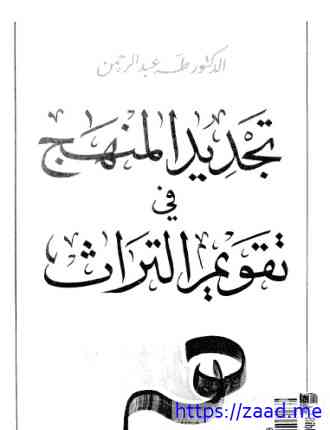 الدكتور طه عبد الرحمن
تجديد المنهج
في
تقويم التراث
https://zaad.me